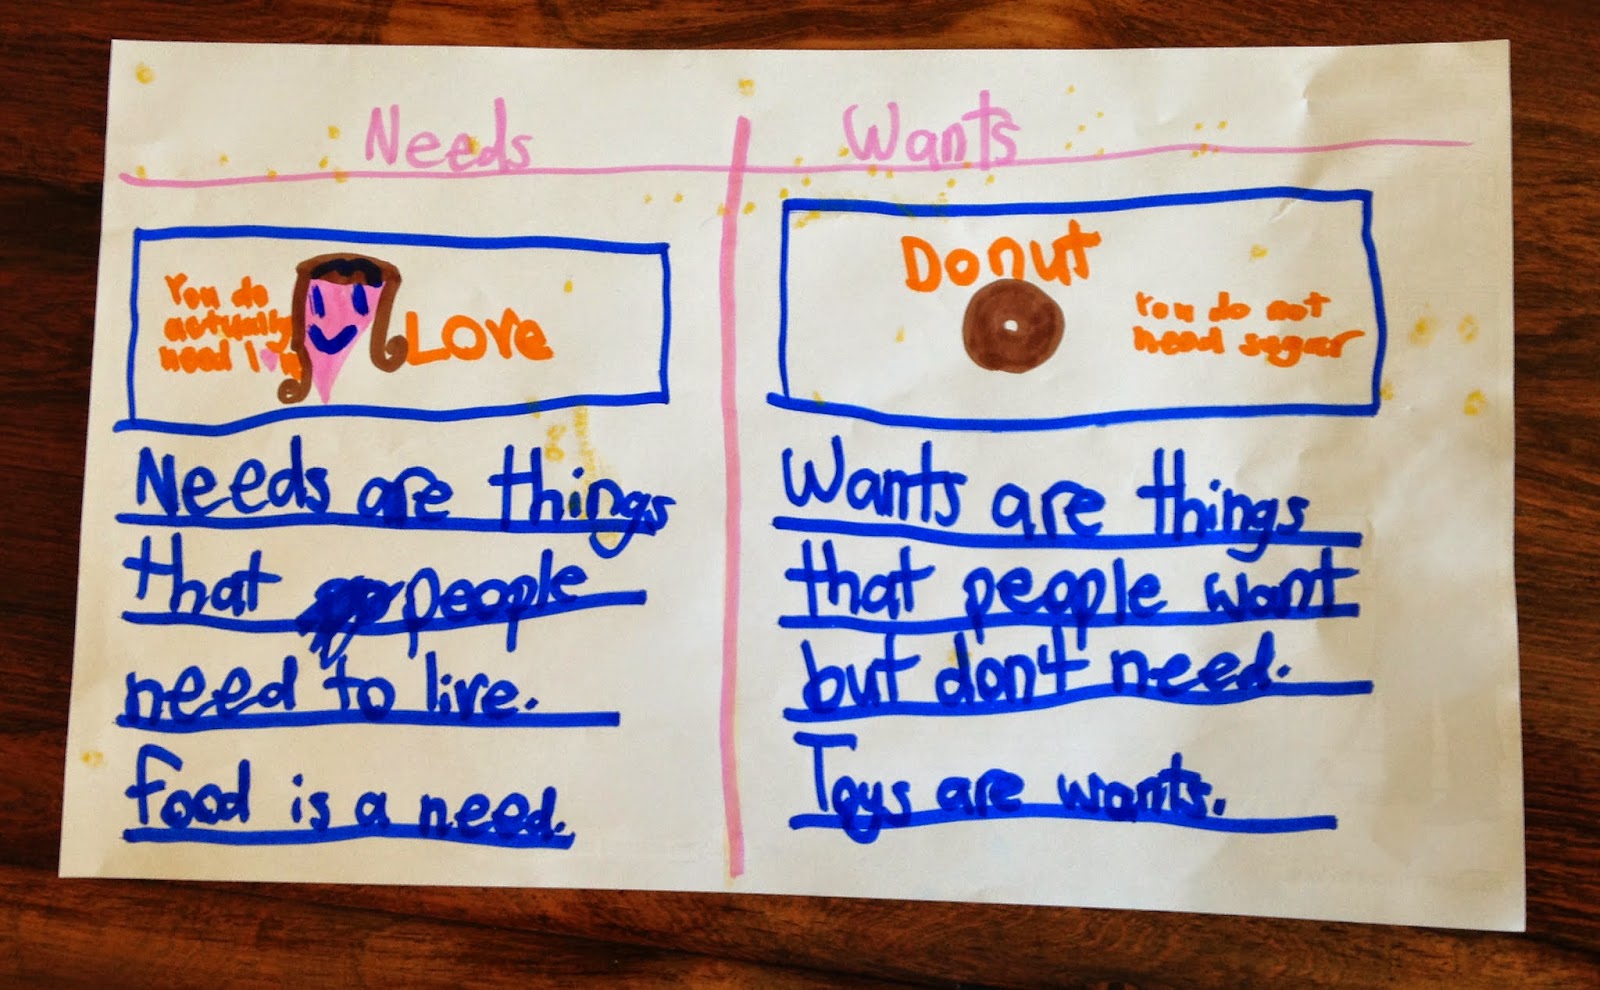 Needs
You do
actually
need
LOVe
Needs are things
that people
need to live.
Food is a need.
Wants
Donut
You do not
need sugar
Wants are things
that people want
but don't need.
Toys are wants.